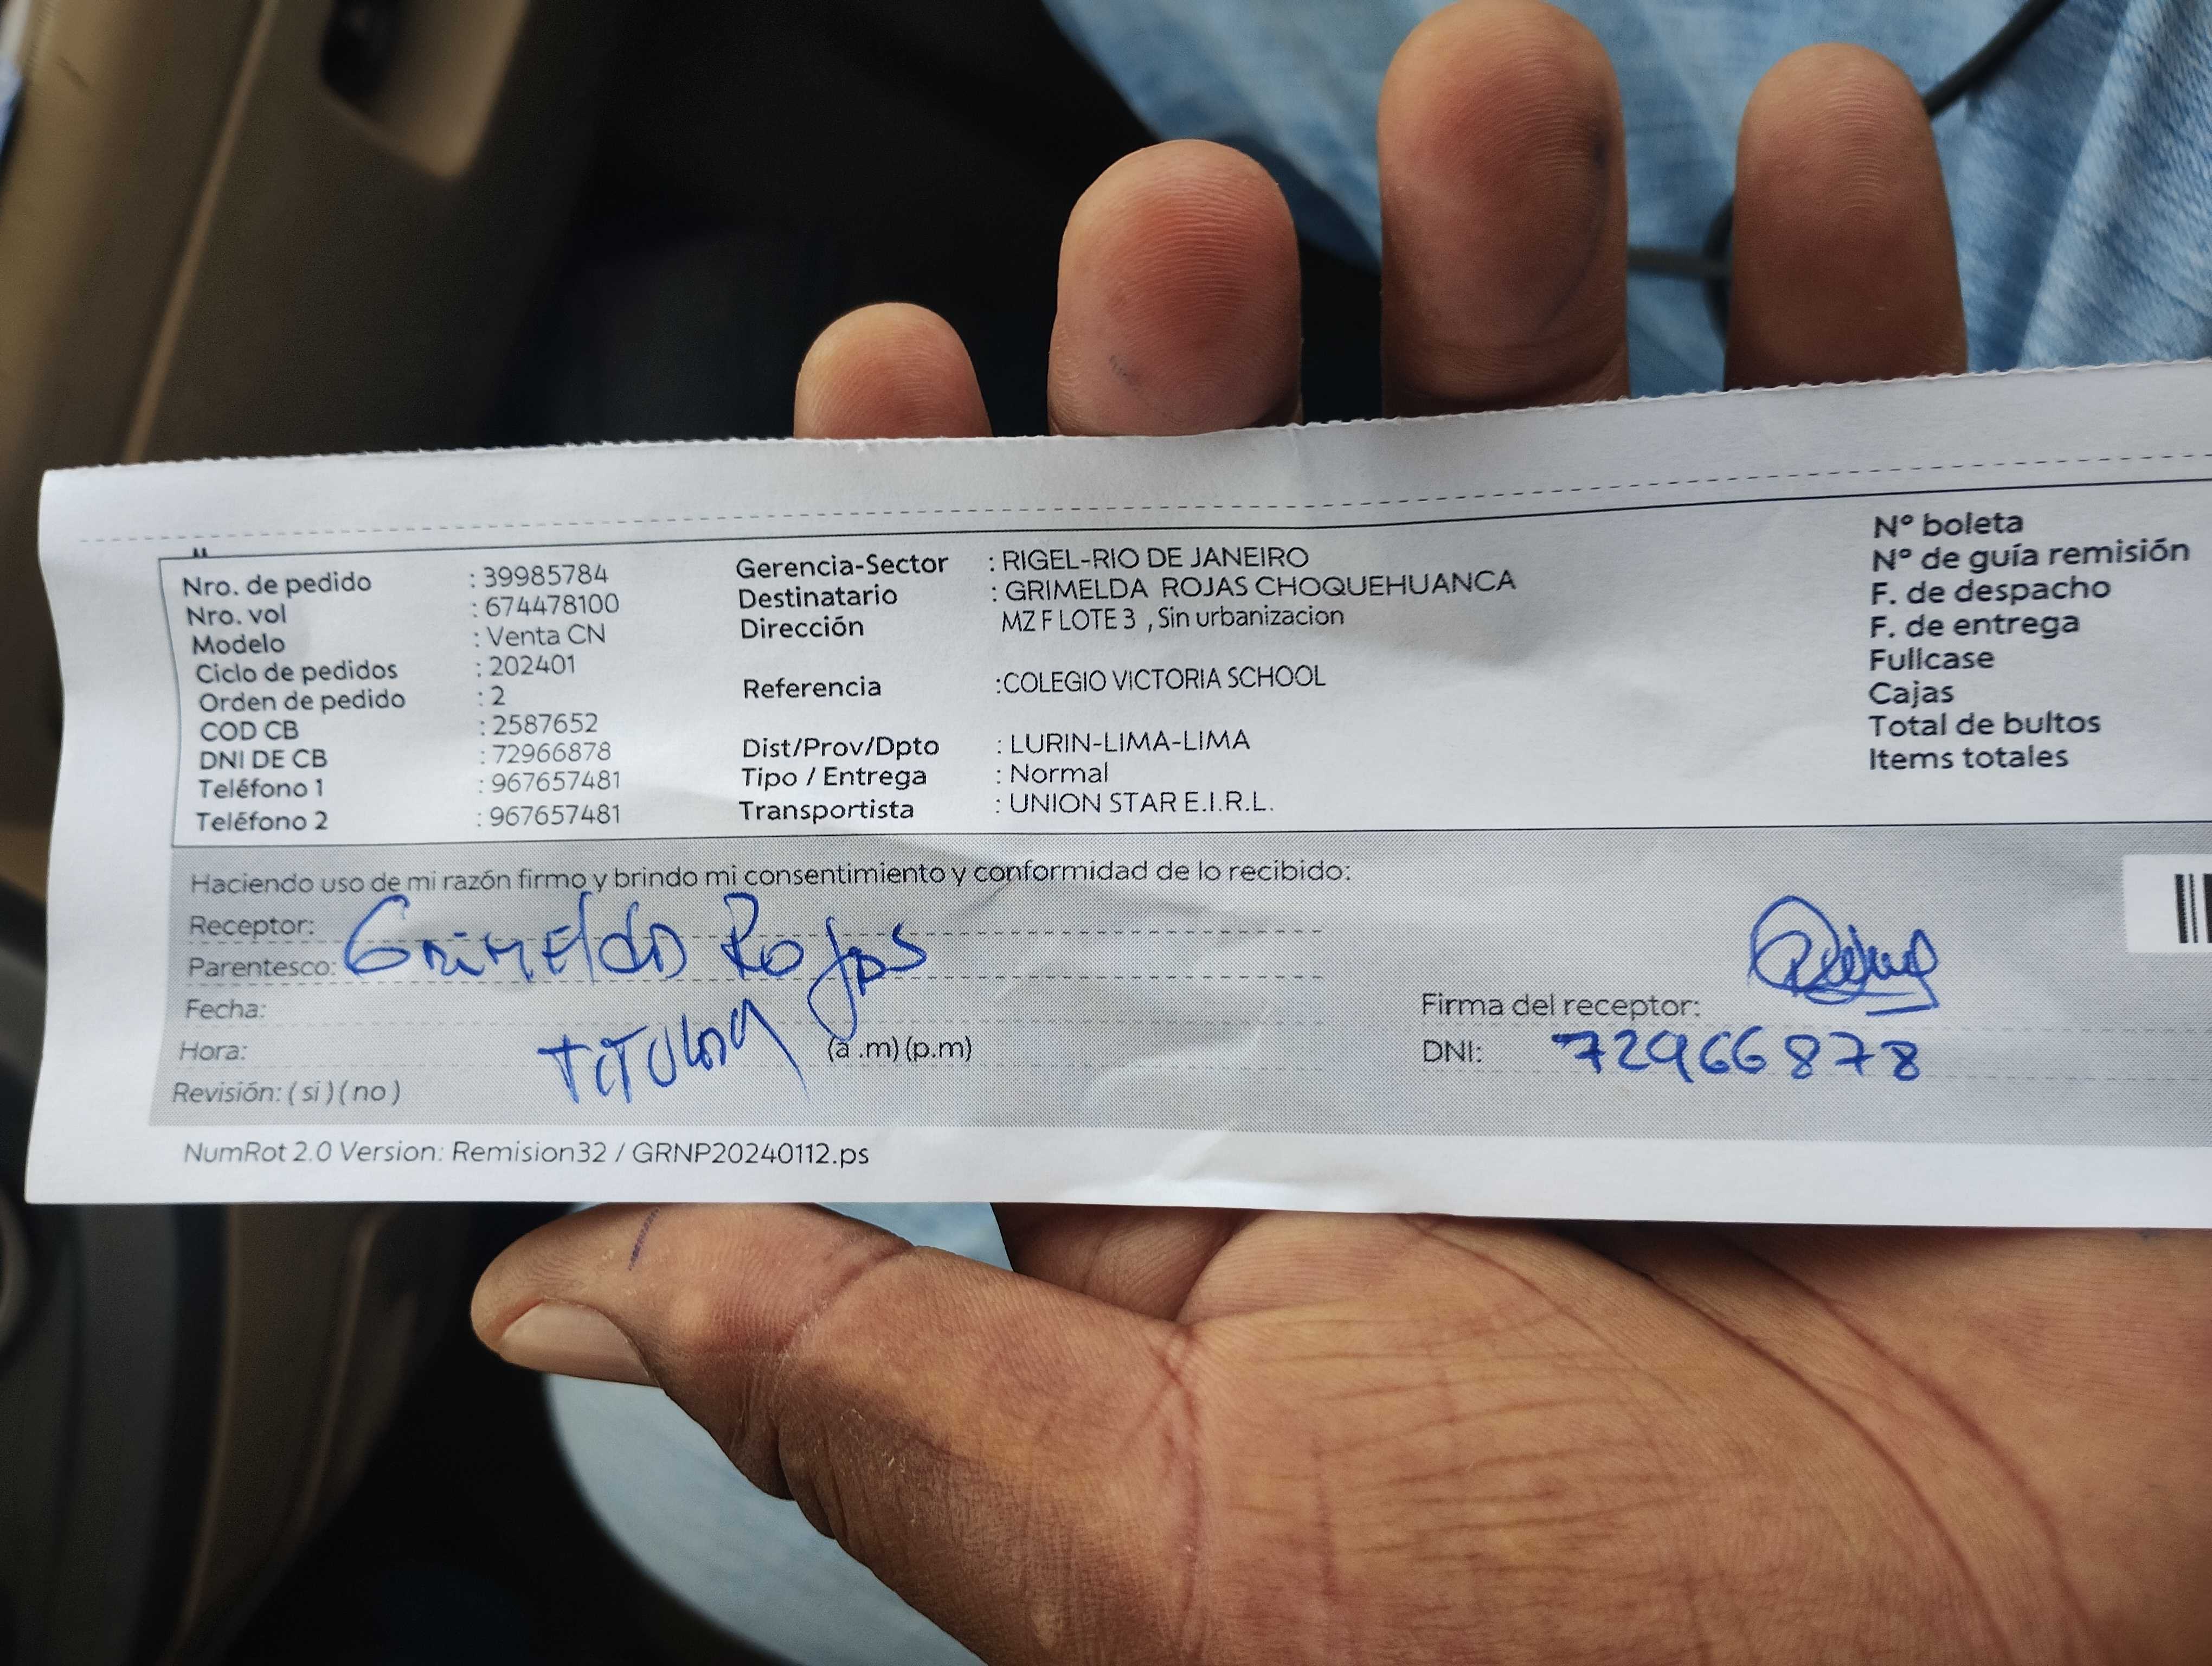 Nro. de pedido : 39985784
Nro. vol : 674478100
Modelo : Venta CN
Ciclo de pedidos : 202401
Orden de pedido : 2
COD CB : 2587652
DNI DE CB : 72966878
Teléfono 1 : 967657481
Teléfono 2 : 967657481
Gerencia-Sector : RIGEL-RIO DE JANEIRO
Destinatario : GRIMELDA ROJAS CHOQUEHUANCA
Dirección MZ F LOTE 3 , Sin urbanizacion
Referencia :COLEGIO VICTORIA SCHOOL
Dist/Prov/Dpto : LURIN-LIMA-LIMA
Tipo / Entrega : Normal
Transportista : UNION STAR E.I.R.L.
N° boleta
N° de guía remisión
F. de despacho
F. de entrega
Fullcase
Cajas
Total de bultos
Items totales
Haciendo uso de mi razón firmo y brindo mi consentimiento y conformidad de lo recibido:
Receptor: Grimelda Rojas
Parentesco:
Fecha:
Hora: Titular (a .m) (p.m)
Revisión: ( si ) ( no )
Firma del receptor:
DNI: 72966878
NumRot 2.0 Version: Remision32 / GRNP20240112.ps